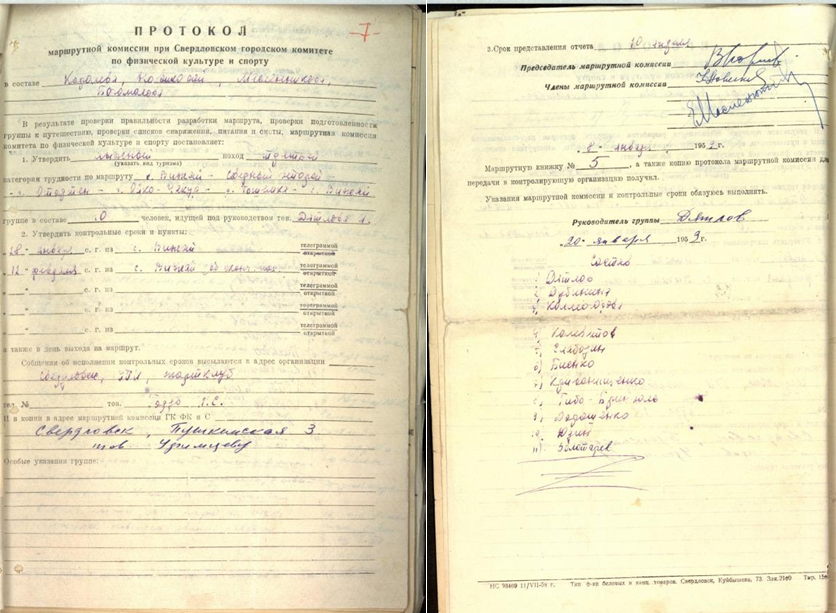 7-
ПРОТОКОЛ
маршрутной комиссии при Свердловском городском комитете
по физической культуре и спорту
в составе Королева, Новикова,
В результате проверки правильности разработки маршрута, проверки подготовленности
группы к путешествию, проверки списков снаряжения, питания и сметы, маршрутная комиссия
комитета по физической культуре и спорту постановляет:
1. Утвердить лыжный поход третьей
(указать вид туризма)
категории трудности по маршруту г. Вижай -
г. Отортен - г. Ойко-Чакур - - г. Вижай
группе в составе человек, идущей под руководством тов. Дятлова
2. Утвердить контрольные сроки и пункты:
28 января с. г. из г. Вижай телеграммой
открыткой
12 февраля с. г. из г. Вижай телеграммой
открыткой
" " с. г. из телеграммой
открыткой
" " с. г. из телеграммой
открыткой
" " с. г. из телеграммой
открыткой
а также в день выхода на маршрут.
Сообщения об исполнении контрольных сроков высылаются в адрес организации
Свердловск, УПИ, спортклуб
тел. № тов. Гордо
И в копии в адрес маршрутной комиссии ГК ФК и С
Свердловск, Пушкинская 3
тов. Уфимцеву
Особые указания группе:
3. Срок представления отчета
Председатель маршрутной комиссии
Члены маршрутной комиссии
8 января 1959 г.
Маршрутную книжку № 5, а также копию протокола маршрутной комиссии для
передачи в контролирующую организацию получил.
Указания маршрутной комиссии и контрольные сроки обязуюсь выполнять.
Руководитель группы Дятлов
20 января 1959 г.
Состав
1) Дятлов
2) Дубинина
3) Колмогорова
4) Колеватов
5) Слободин
6) Биенко
7) Кривонищенко
8) Тибо-Бриньоль
9) Дорошенко
10) Юдин
11) Золотарев
НС 98469 11/VII-58 г. Тип. ф-ки беловых и канц. товаров. Свердловск, Куйбышева, 73. Зак.